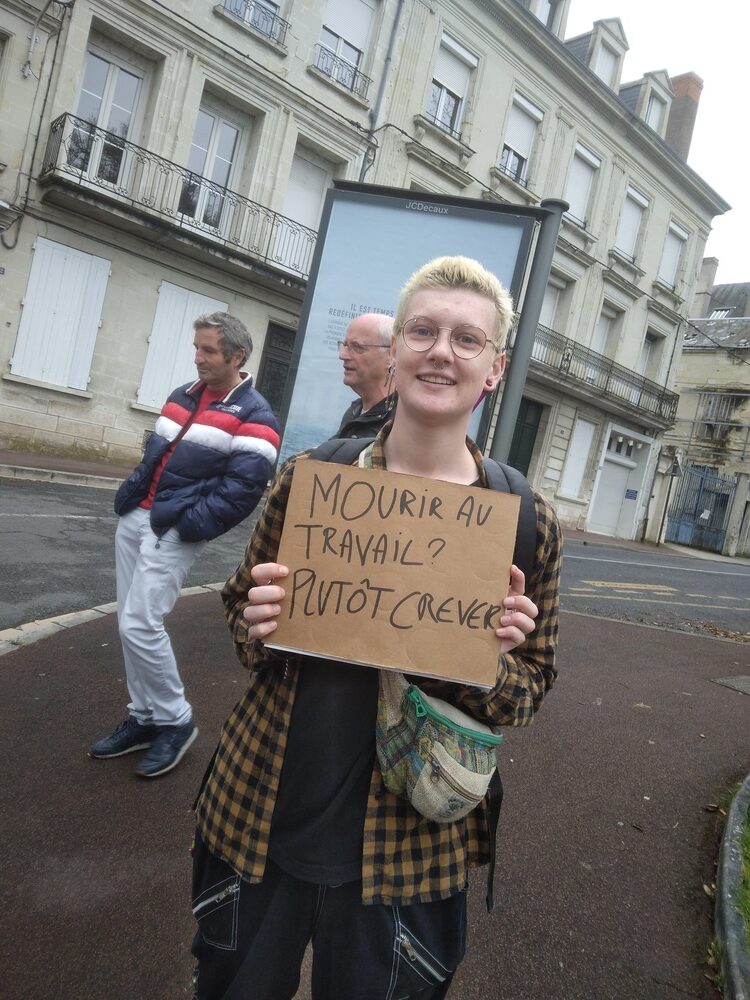 JCDecaux
IL EST TEMPS
MOURIR AU
TRAVAIL?
PLUTÔT CREVER